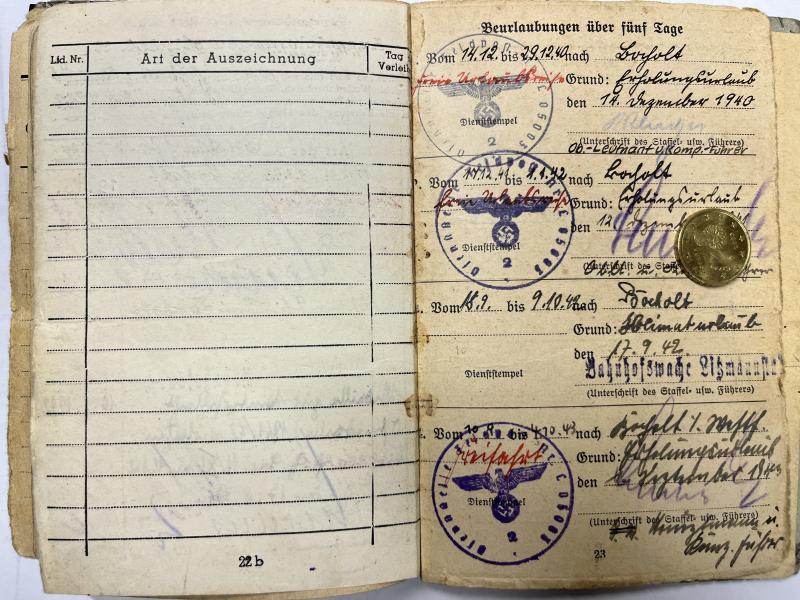 Lfd. Nr.
Art der Auszeichnung
Tag
Verleih
22b
Beurlaubungen über fünf Tage
Vom 14.12. bis 29.12.40 nach Bocholt
Freie Urlaubsreise Grund: Erholungsurlaub
den 14. Dezember 1940
Dienststempel
Dienststelle Feldpost Nr. L 05003
2
(Unterschrift des Staffel- usw. Führers)
Ob.-Leutnant u. Komp.-Führer
Vom bis 1.1.42 nach Bocholt
Freie Urlaubsreise Grund: Erholungsurlaub
den 12. Dezem
Dienststempel
L 05003
2
(Unterschrift des Staffel- usw. Führers)
Vom 18.9. bis 9.10.42 nach Bocholt
Grund: Heimaturlaub
den 17.9.42.
Bahnhofswache Litzmannstadt
Dienststempel
(Unterschrift des Staffel- usw. Führers)
Vom bis nach Bocholt i. Westf.
Freifahrt Grund: Erholungsurlaub
den September 1943
Dienststempel
L 05003
2
(Unterschrift des Staffel- usw. Führers)
Hauptmann u.
23